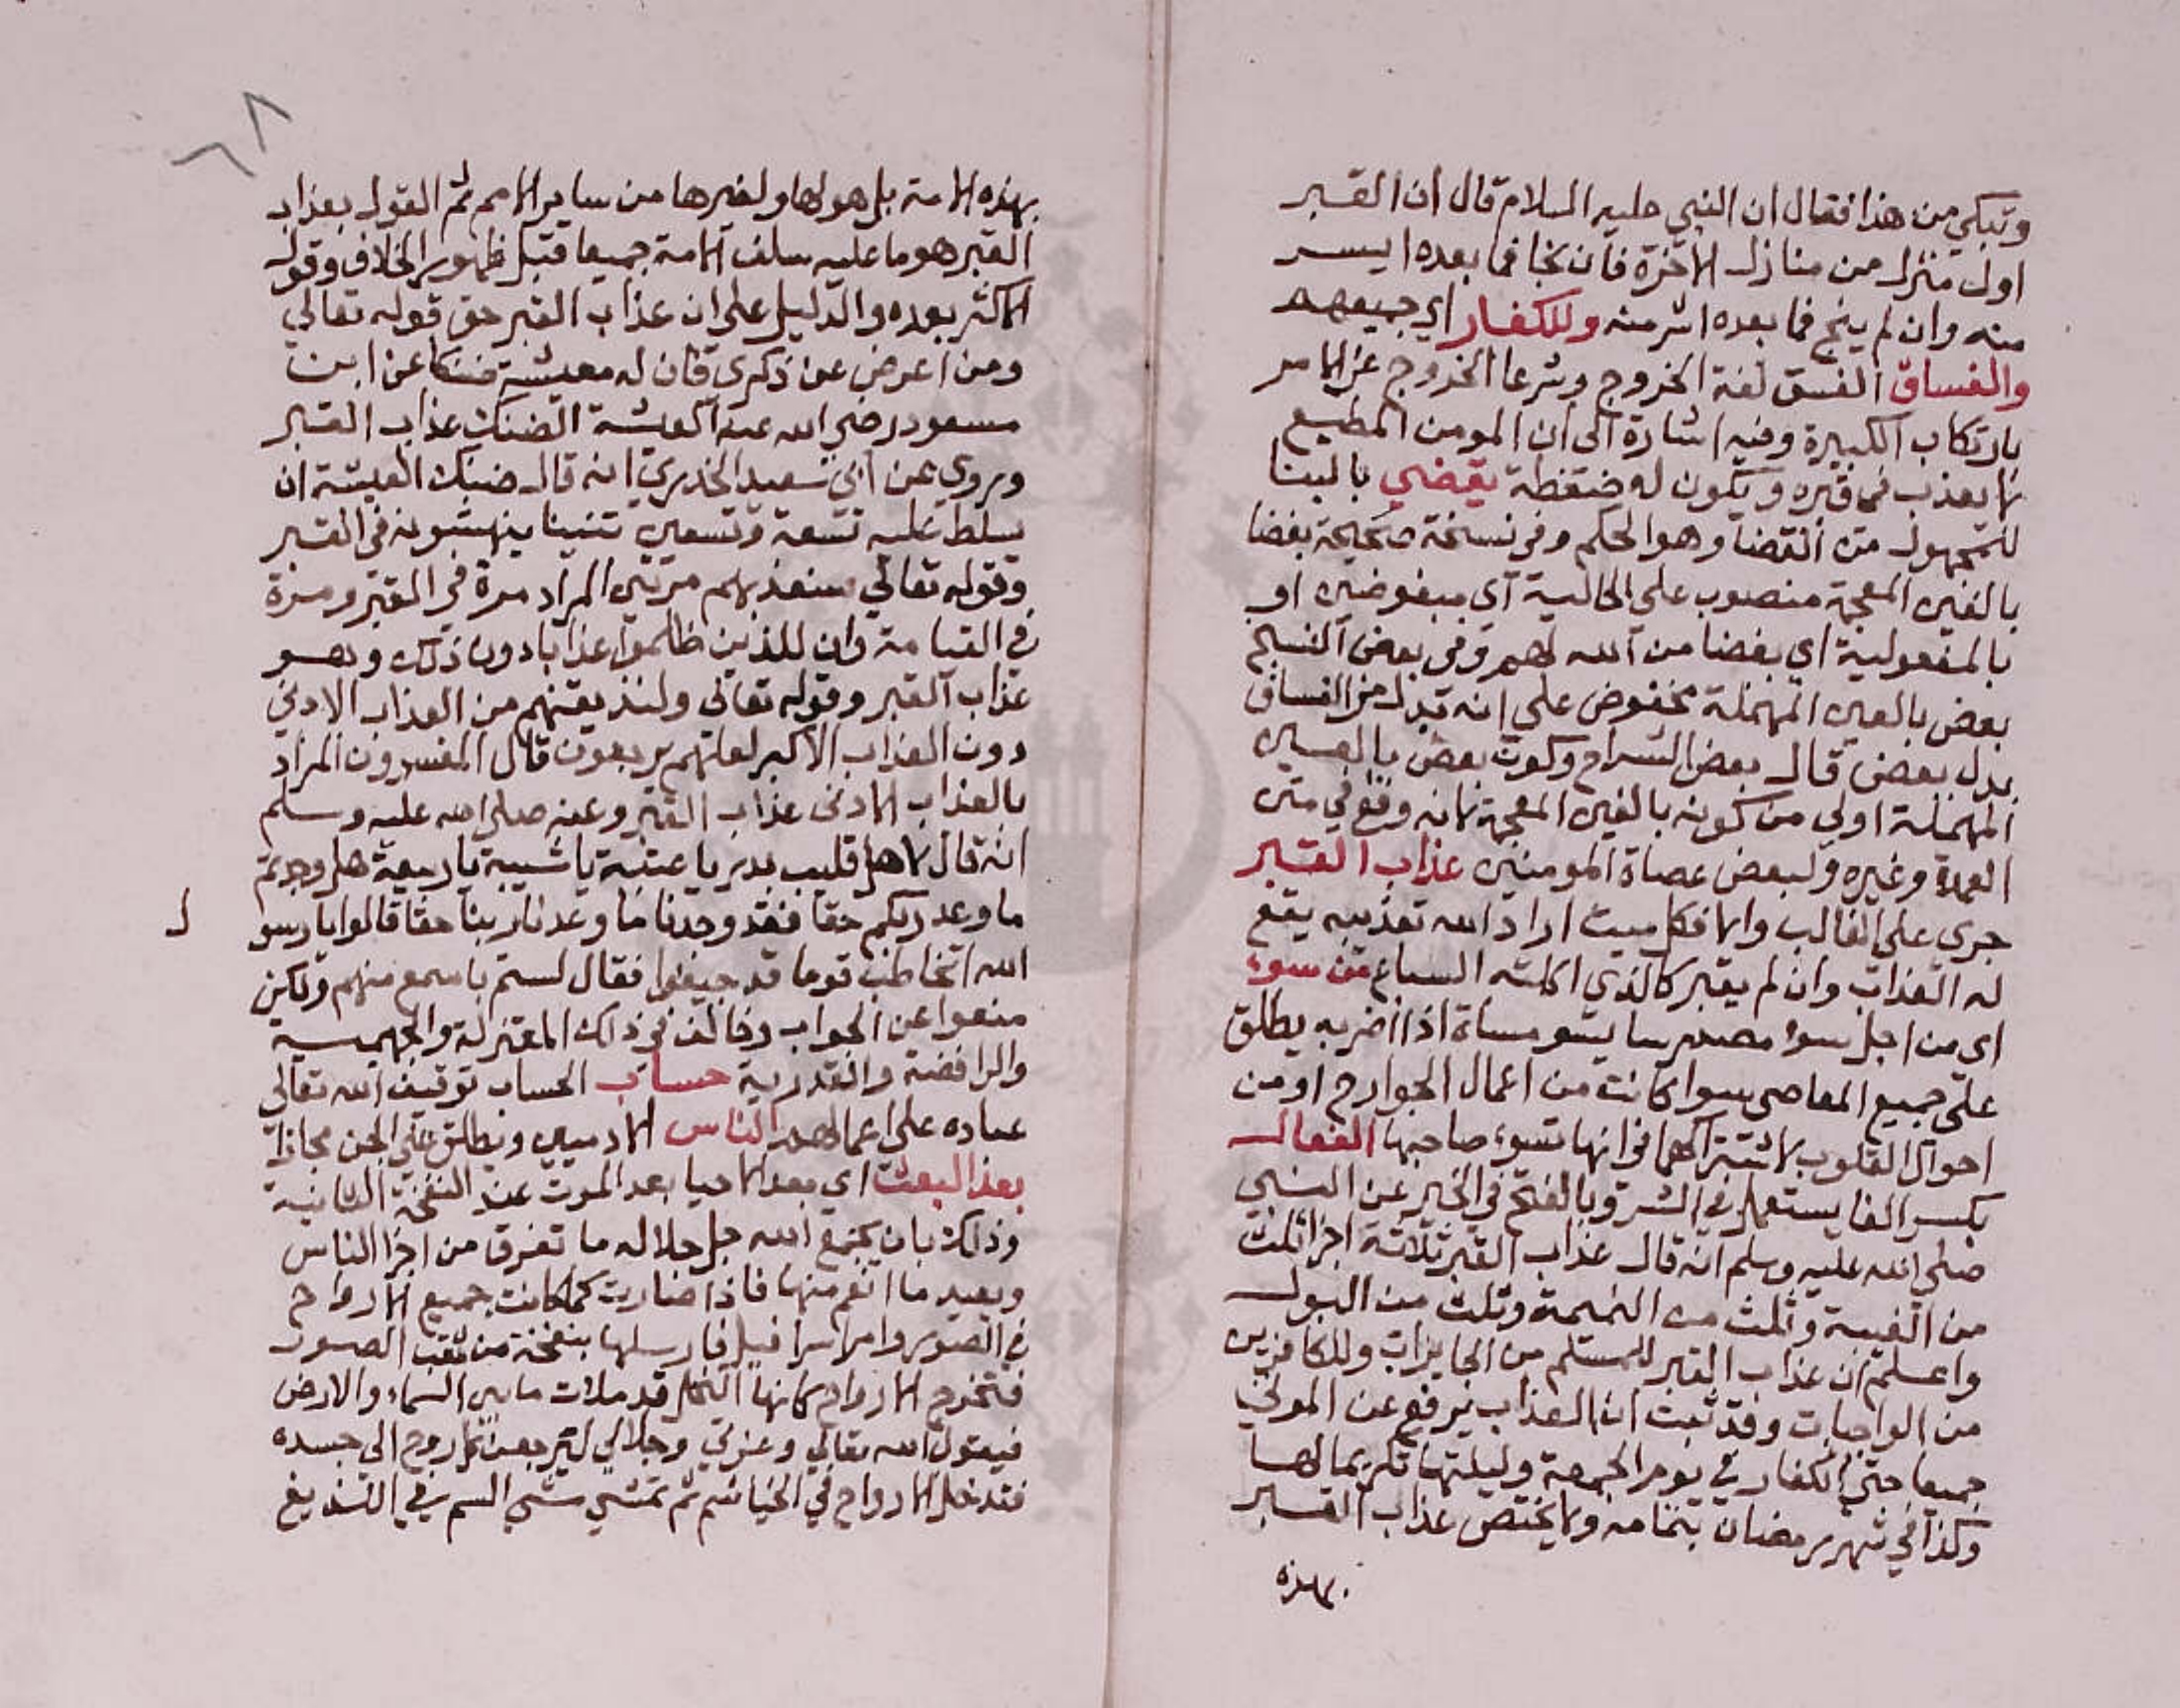 وتبكي من هذا فقال ان النبي عليه السلام قال ان القبر
اول منزل من منازل الاخرة فان نجا فما بعده ايسر
منه وان لم ينج فما بعده اشر منه وللكفار اي جميعهم
والفساق الفسق لغة الخروج وشرعا الخروج عن الامر
بارتكاب الكبيرة وفيه اشارة الى ان المومن المطيع
لا يعذب في قبره ويكون له ضغطة يقضي بالبنا
للمجهول من القضا وهو الحكم وفي نسخة صحيحة بغضا
بالغين المعجمة منصوب على الحالية اي مبغوضين او
بالمفعولية اي بغضا من الله لهم وفي بعض النسخ
بعض بالعين المهملة مخفوض على انه بدل من الفساق
بدل بعض قال بعض الشراح وكون بعض بالعين
المهملة اولي من كونه بالغين المعجمة لانه وقع في متن
العمدة وغيره ولبعض عصاة المومنين عذاب القبر
جرى على الغالب والا فكل ميت اراد الله تعذيبه يقع
له العذاب وان لم يقبر كالذي اكلته السباع من سوء
اي من اجل سوا مصدر سا يسو مساة اذا اضر به يطلق
على جميع المعاصي سوا كانت من اعمال الجوارح او من
احوال القلوب لاشتراكهما في انها تسوء صاحبها الفعال
بكسر الفا يستعمل في الشر وبالفتح في الخير عن النبي
صلى الله عليه وسلم انه قال عذاب القبر ثلاثة اجزا ثلث
من الغيبة وثلث من النميمة وثلث من البول
واعلم ان عذاب القبر للمسلم من الجايزات وللكافرين
من الواجبات وقد ثبت ان العذاب يرفع عن الموتى
جميعا حتى الكفار في يوم الجمعة وليلتها تكريما لها
وكذا في شهر رمضان بتمامه ولا يختص عذاب القبر
بهذه
٦٨
بهذه الامة بل هو لها ولغيرها من ساير الامم ثم القول بعذاب
القبر هو ما عليه سلف الامة جميعا قبل ظهور الخلاف وقول
الاكثر بعده والدليل على ان عذاب القبر حق قوله تعالي
ومن اعرض عن ذكري فان له معيشة ضنكا عن ابن
مسعود رضي الله عنه المعيشة الضنك عذاب القبر
وروي عن ابي سعيد الخدري انه قال ضنك المعيشة ان
يسلط عليه تسعة وتسعين تنينا ينهشونه في القبر
وقوله تعالي سنعذبهم مرتين المراد مرة في القبر ومرة
في القيامة وان للذين ظلموا عذابا دون ذلك وهو
عذاب القبر وقوله تعالى ولنذيقنهم من العذاب الادني
دون العذاب الاكبر لعلهم يرجعون قال المفسرون المراد
بالعذاب الادنى عذاب القبر وعنه صلى الله عليه وسلم
انه قال لاهل قليب بدر يا عتبة يا شيبة يا ربيعة هل وجدتم
ما وعد ربكم حقا فقد وجدنا ما وعدنا ربنا حقا قالوا يا رسو ل
الله اتخاطب قوما قد جيفوا فقال لستم باسمع منهم ولكن
منعوا عن الجواب وخالف في ذلك المعتزلة والجهمية
والرافضة والقدرية حساب الحساب توقيف الله تعالي
عباده على اعمالهم الناس الادميين ويطلق على الجن مجازا
بعد البعث اي بعد الاحيا بعد الموت عند النفخة الثانية
وذلك بان يجمع الله جل جلاله ما تفرق من اجزا الناس
ويعيد ما انعدم منها فاذا صارت كما كانت جميع الارواح
في الصور وامر اسرافيل فارسلها بنفخة من ثقب الصور
فتخرج الارواح كانها النحل قد ملات ما بين السماء والارض
فيقول الله تعالي وعزتي وجلالي ليرجعن كل روح الي جسده
فتدخل الارواح في الخياشيم ثم تمشي مشي السم في اللديغ